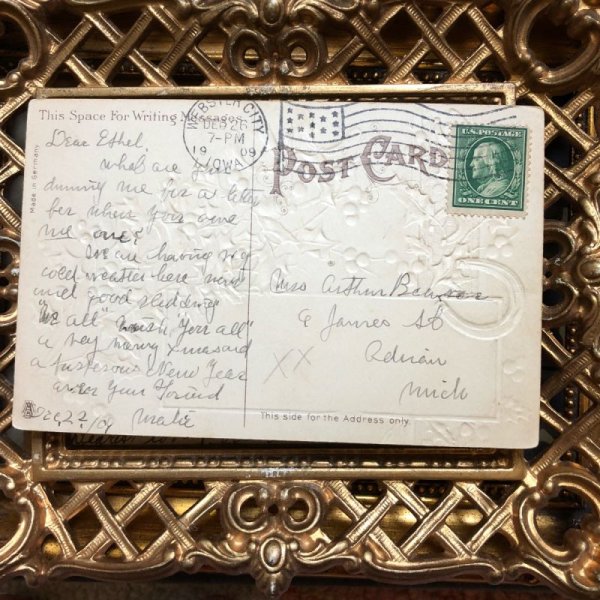 This Space For Writing Messages
WEBSTER CITY
DEC 26
7-PM
1909
IOWA
POST CARD
U.S. POSTAGE
ONE CENT
Made in Germany
Dear Ethel,
what are you
duning me for a letter
for when you owe
me one?
We are having very
cold weather here now
and good sledding
"We all" wish "you all"
a very merry Xmas and
a prosperous New Year
ever your friend
Dec 22/09
Miss Arthur
James St
Adrian
Mich
XX
This side for the Address only.